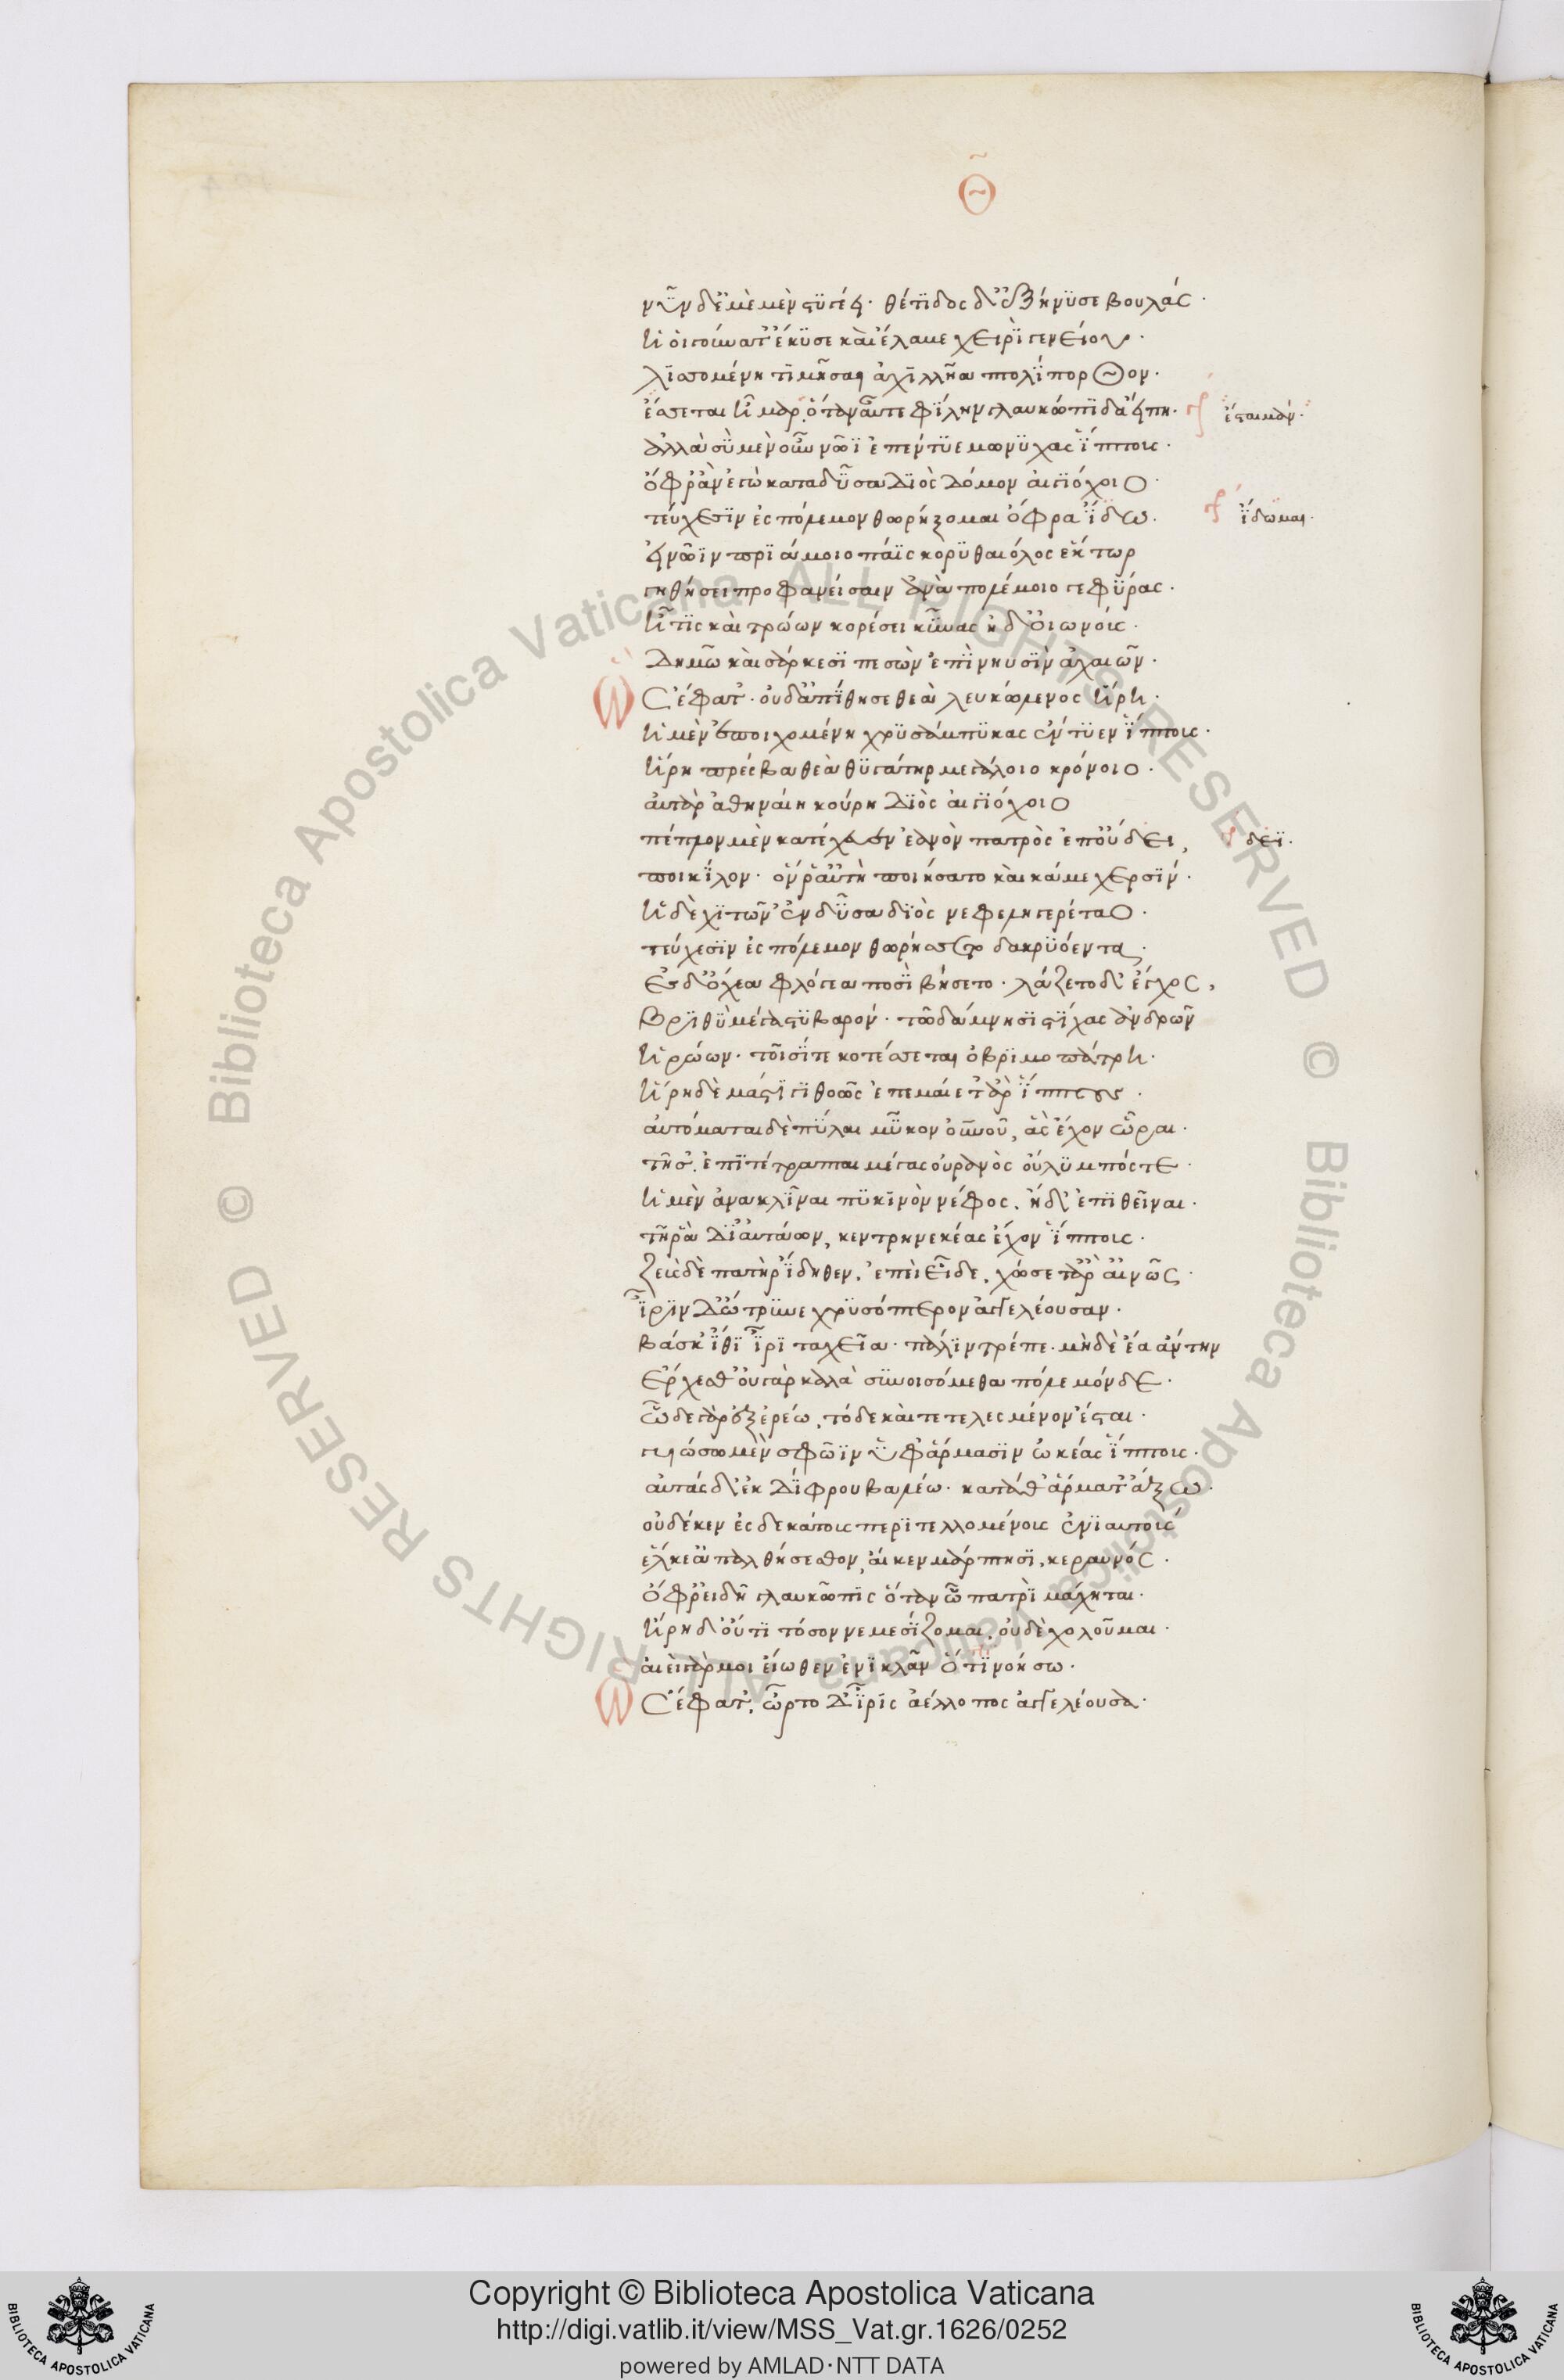 Θ
νῦν δ' ἐμὲ μὲν στυγέει· Θέτιδος δ' ἐξήνυσε βουλάς·
ἥ οἱ γούνατ' ἔκυσε καὶ ἔλαβε χειρὶ γενείου·
λισσομένη τιμῆσαι ἀχιλλῆα πτολίπορθον·
ἔσσεται ἦ μὰρ ὅταν αὖτε φίλην γλαυκώπιδα εἴπη·
ἔσται μάν·
ἀλλὰ σὺ μὲν οὖν νῶϊ ἐπέντυε μώνυχας ἵππους·
ὄφρ' ἂν ἐγὼ καταδῦσα Διὸς δόμον αἰγιόχοιο·
τεύχεσιν ἐς πόλεμον θωρήξομαι ὄφρα ἴδω·
ἴδωμαι·
εἰ νῶϊν πριάμοιο πάϊς κορυθαιόλος ἕκτωρ
γηθήσει προφανείσαιν ἀνὰ πολέμοιο γεφύρας·
ἦ τις καὶ τρώων κορέσει κύνας ἠδ' οἰωνούς·
δημῶ καὶ σάρκεσι πεσὼν ἐπὶ νηυσὶν ἀχαιῶν·
Ὣς ἔφατ'· οὐδ' ἀπίθησε θεὰ λευκώλενος ἥρη·
ἡ μὲν ἐποιχομένη χρυσάμπυκας ἔντυεν ἵππους·
ἥρη πρέσβα θεὰ θυγάτηρ μεγάλοιο κρόνοιο·
αὐτὰρ ἀθηναίη κούρη Διὸς αἰγιόχοιο
πέπλον μὲν κατέχευεν ἑανὸν πατρὸς ἐπ' οὔδει,
δεϊ·
ποικίλον· ὅν ῥ' αὐτὴ ποιήσατο καὶ κάμε χερσίν·
ἡ δὲ χιτῶν' ἐνδῦσα διὸς νεφεληγερέταο·
τεύχεσιν ἐς πόλεμον θωρήσσετο δακρυόεντα·
ἐς δ' ὄχεα φλόγεα ποσὶ βήσετο· λάζετο δ' ἔγχος,
βριθὺ μέγα στιβαρόν· τῶ δάμνησι στίχας ἀνδρῶν
ἡρώων· τοῖσίτε κοτέσσεται ὀβριμοπάτρη·
ἥρη δὲ μάστιγι θοῶς ἐπεμαίετ' ἂρ ἵππους·
αὐτόμαται δὲ πύλαι μῦκον οὐρανοῦ, ἃς ἔχον ὧραι·
τῆς ἐπιτέτραπται μέγας οὐρανὸς οὔλυμπός τε·
ἠ μὲν ἀνακλῖναι πυκινὸν νέφος, ἠδ' ἐπιθεῖναι·
τῆ ῥα δι' αὐτάων, κεντρηνεκέας ἔχον ἵππους·
Ζεὺς δὲ πατὴρ ἴδηθεν, ἐπεὶ εἶδε, χώσετ' ἂρ' αἰνῶς·
ἶριν δ' ὤτρυνε χρυσόπτερον ἀγγελέουσαν·
βάσκ' ἴθι ἶρι ταχεῖα· πάλιν τρέπε· μὴ δὲ ἔα ἄντην
ἔρχεσθ' οὐ γὰρ καλὰ συνοισόμεθα πόλεμόνδε·
ὧδε γὰρ ἐξερέω, τόδε καὶ τετελεσμένον ἔσται·
γυιώσω μὲν σφῶϊν ὑφ' ἅρμασιν ὠκέας ἵππους·
αὐτὰς δ' ἐκ δίφρου βαλέω· κατά θ' ἅρματ' ἄξω·
οὐδέ κεν ἐς δεκάτους περιτελλομένους ἐνιαυτούς
ἕλκε' ἀπαλθήσεσθον, αἵ κεν μάρπτησι, κεραυνός·
ὄφρ' εἰδῆ γλαυκῶπις ὅταν ὧ πατρὶ μάχηται·
ἥρη δ' οὔτι τόσον νεμεσίζομαι, οὐδὲ χολοῦμαι·
αἰεὶ γάρ μοι εἴωθεν ἐνικλᾶν ὅτι νοήσω·
Ὣς ἔφατ', ὦρτο δ' ἶρις ἀελλοπος ἀγγελέουσα·
Copyright © Biblioteca Apostolica Vaticana
http://digi.vatlib.it/view/MSS_Vat.gr.1626/0252
powered by AMLAD·NTT DATA